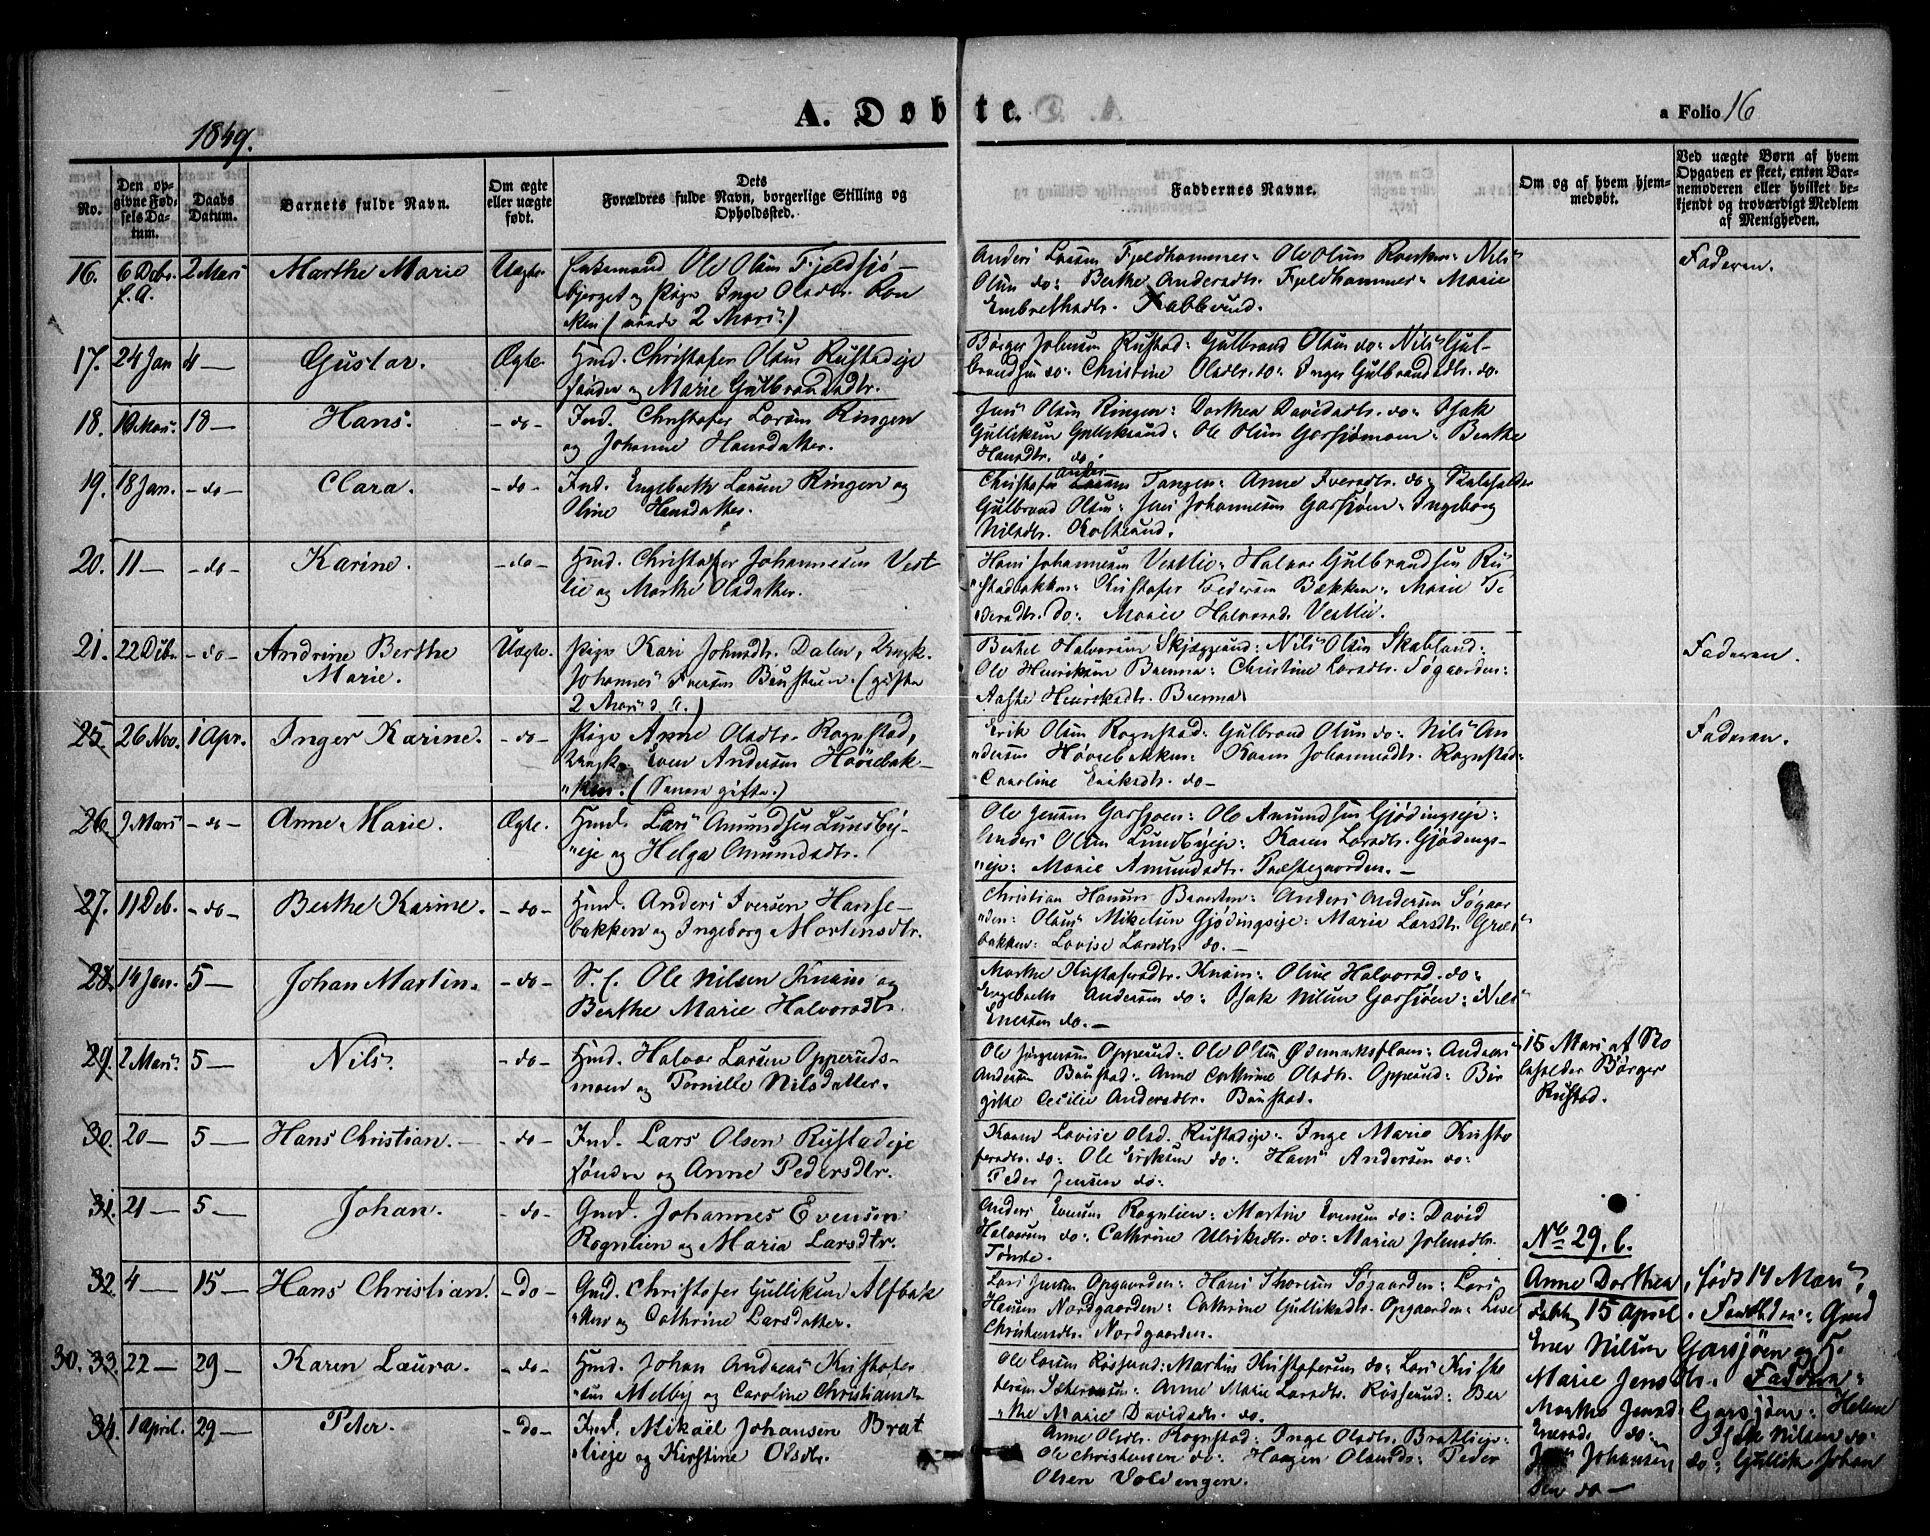 A. Døbte.
1849.
a Folio 16
No.
Den opgivne Fødsels Datum.
Daabs Datum.
Barnets fulde Navn.
Om ægte eller uægte født.
Dets Forældres fulde Navn, borgerlige Stilling og Opholdssted.
Faddernes Navne.
Om og af hvem hjemmedøbt.
Ved uægte Børn af hvem Opgaven er skeet, enten Barnemoderen eller hvilket bekjendt og troværdigt Medlem af Menigheden.
16. 6 Debr. f.A. 2 Mars Marthe Marie Uægte. Enkemand Ole Olsen Fjeldsjø-
bjerget og Pige Inge Olsdtr. Ron
ken ( 2 Mars.)
Anders Larsen Fjeldhammer: Ole Olsen Ronken: Nils
Olsen do: Berthe Andersdtr. Fjeldhammer: Marie
Embrethsdtr. Kabberud.
Faderen.
17. 24 Jan 4 — Gustav. Ægte. Hmd. Christofer Olsen Rustadeje
søndre og Marie Gulbrandsdtr.
Børger Johnsen Rustad: Gulbrand Olsen do: Nils Gul-
brandsen do: Christine Olsdtr. do: Inger Gulbrandsdtr. do.
18. Mars. 18 — Hans. - do - Ind. Christofer Larsen Ringen
og Johanne Hansdatter.
Jens Olsen Ringen: Dorthea Davidsdtr. do: Isak
Gulliksen Gulliksrud: Ole Olsen Garsjømoen: Berthe
Hansdtr. do.
19. 18 Jan. - do - Clara. - do - Ind. Engebreth Larsen Ringen og
Oline Hansdatter.
Christofer Tangen: Anne Iversdtr. do:
Gulbrand Olsen: Jens Johannesen Garsjøen: Ingeborg
Nilsdtr. Kolterud.
20. 11 — - do - Karine. - do - Hmd. Christofer Johannesen Vest
lie og Marthe Olsdatter.
Hans Johannesen Vestlie: Halvor Gulbrandsen Ru-
stadbakken: Kristofer Pedersen Bakken: Marie P
dersdtr. do: Marie Halvorsd. Vestlie.
21. 22 Dbr. - do - Andrine Berthe
Marie. Uægte. Pige Kari Johnsdtr. Dalen, Ungk.
Johannes Iversen Baustuen (gifte
2 Mars d. A.)
Berthel Halvorsen Skjæggerud: Nils Olsen Skabland:
Ole Henriksen Brenna: Christine Larsdtr. Søgaarden:
Aaste Henriksdtr. Brenna
Faderen.
25. 26 Nov. 1 Apr. Inger Karine. - do - Pige Anne Olsdtr. Rognstad,
Ungk. Even Andersen Høvrebak-
ken. (Senere gifte.)
Erik Olsen Rognstad: Gulbrand Olsen do: Nils An
dersen Høvrebakken: Karen Johannesdtr. Rognstad:
Caroline Eriksdtr. do —
Faderen.
26. 9 Mars - do - Anne Marie. Ægte. Hmd. Lars Amundsen Lundby-
eje og Helga Amundsdtr.
Ole Jensen Garsjøen: Ole Amundsen Gjødingseje:
Anders Olsen Lundbyeje: Karen Larsdtr. Gjødings-
eje: Marie Amundsdtr. Præstegaarden. —
27. 11 Deb. - do - Berthe Karine. - do - Hmd. Anders Iversen Hanse-
bakken og Ingeborg Mortensdtr.
Christian Hansen Braaten: Anders Andersen Søgaar
den: Olaus Mikelsen Gjødingseje: Maria Larsdtr. Græs
bakken: Lovise Larsdtr. do. —
28. 14 Jan. 5 — Johan Martin. - do - S. f. Ole Nilsen Knain og
Berthe Marie Halvorsdtr.
Marthe Kristofersdtr. Knain: Oline Halvorsd. do:
Engebreth Andersen do: Isak Nilsen Garsjøen: Nils
Enersen do. —
29. 2 Mars 5 — Nils. - do - Hmd. Halvor Larsen Opperuds-
moen og Pernille Nilsdatter.
Ole Jørgensen Opperud: Ole Olsen Ødemarksflaen: Andreas
Andersen Baustad: Anne Cathrine Olsdtr. Opperud: Bir
gitte Cecilie Andersdtr. Baustad.
15 Mars af Sko
leholder Børger
Rustad.
30. 20 — 5 — Hans Christian. - do - Ind. Lars Olsen Rustadeje
søndre og Anne Pedersdtr.
Karen Lovise Olsd. Rustadeje: Inge Marie Kristo
fersdtr. do: Ole Eriksen do: Hans Andersen do:
Peder Jensen do:
31. 21 — 5 — Johan. - do - Gmd. Johannes Evensen
Rognlien og Maria Larsdtr.
Anders Evensen Rognlien: Martin Evensen do: David
Halvorsen do: Cathrine Ulriksdtr. do: Maria Johnsdtr.
Tonde.
32. 4 — 15 — Hans Christian. - Do - Gmd. Christofer Gulliksen Alfbak
ken og Cathrine Larsdatter.
Lars Jensen Opgaarden: Hans Thoresen Søgaarden: Lars
Hansen Nordgaarden: Cathrine Gulliksdtr. Opgaarden: Lise
Christensdtr. Nordgaarden.
30. 33. 22 — 29 — Karen Laura. - do - Hmd. Johan Andreas Kristofer
sen Melby og Caroline Christiansdtr
Ole Larsen Røsserud: Martin Kristofersen do: Lars Kristo
fersen : Anne Marie Larsdtr. Røsserud: Ber
the Marie Davidsdtr. do.
34. 1 April. 29 — Peter. - Do - Ind. Mikael Johansen Brat
lieje og Kirstine Olsdtr.
Anne Olsdtr. Rognstad: Inge Olsdtr. Bratlieje:
Ole Christensen do: Haagen Olsen do: Peder
Olsen Voldengen.
No 29. b.
Anne Dorthea, født 14 Mars,
døbt 15 April. Forældre: Gmd
Ener Nilsen Garsjøen og
Marie Jensdtr. Faddere:
Marthe Jensd. Garsjøen: Helene
Enersd. do: Isak Nilsen do.
Jens Johansen do: Gullik Johan
sen do —